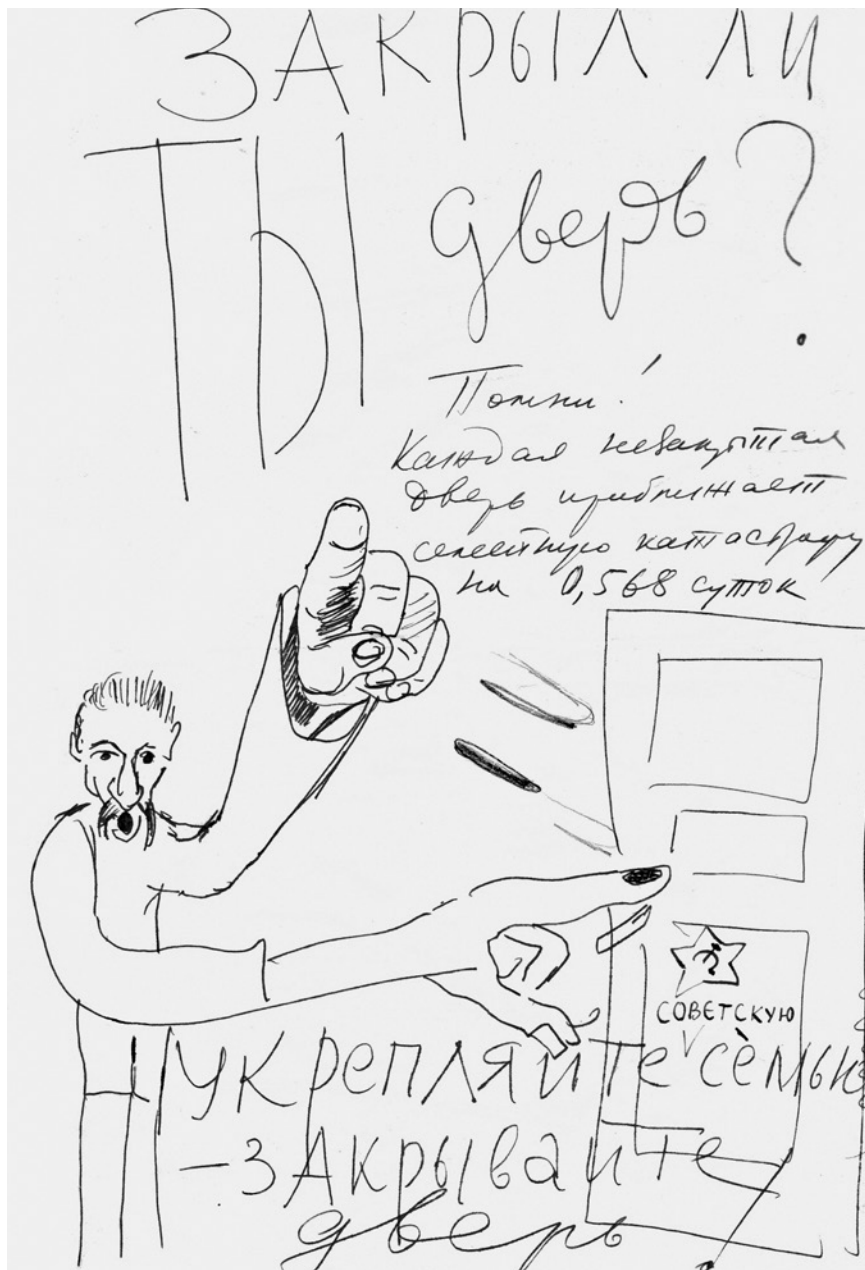 ЗАКРЫЛ ЛИ
ТЫ дверь?
Помни!
Каждая незакрытая
дверь приближает
семейную катастрофу
на 0,568 суток
СОВЕТСКУЮ
УКРЕПЛЯЙТЕ СЕМЬЮ
– ЗАКРЫВАЙТЕ
дверь